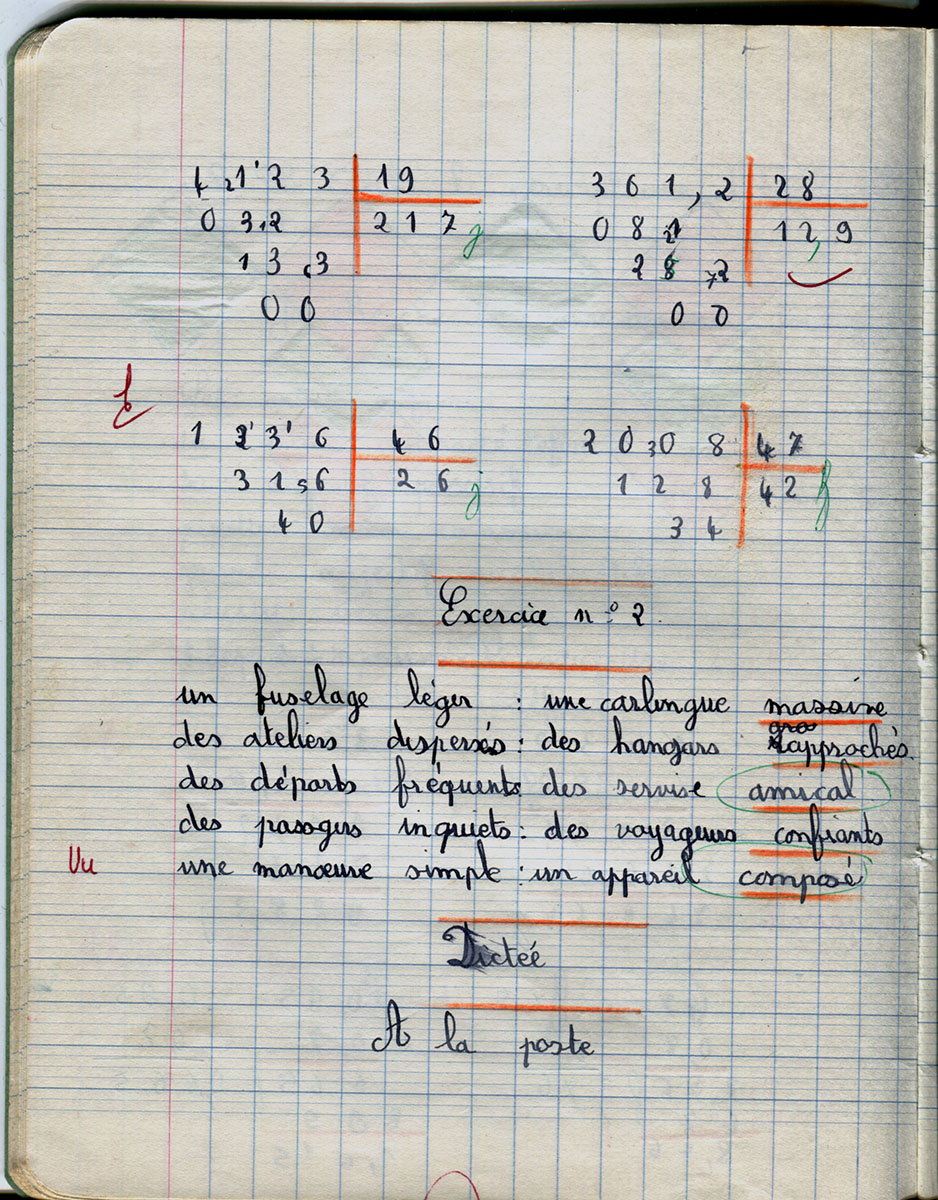 4 1 2 3 19
0 3 2 2 1 7 j
1 3 3
0 0
3 6 1 , 2 28
0 8 1 1 2 , 9
2 8 7 2
0 0
b
1 2 3 6 4 6
3 1 6 2 6 j
4 0
2 0 0 8 4 7
1 2 8 4 2 f
3 4
Exercice n° 2.
un fuselage léger : une carlingue massive
gros
des ateliers dispersés : des hangars rapprochés.
des départs fréquents des servise amical
des passagers inquiets : des voyageurs confiants
Vu
une manœuvre simple : un appareil composé
Dictéé
A la poste